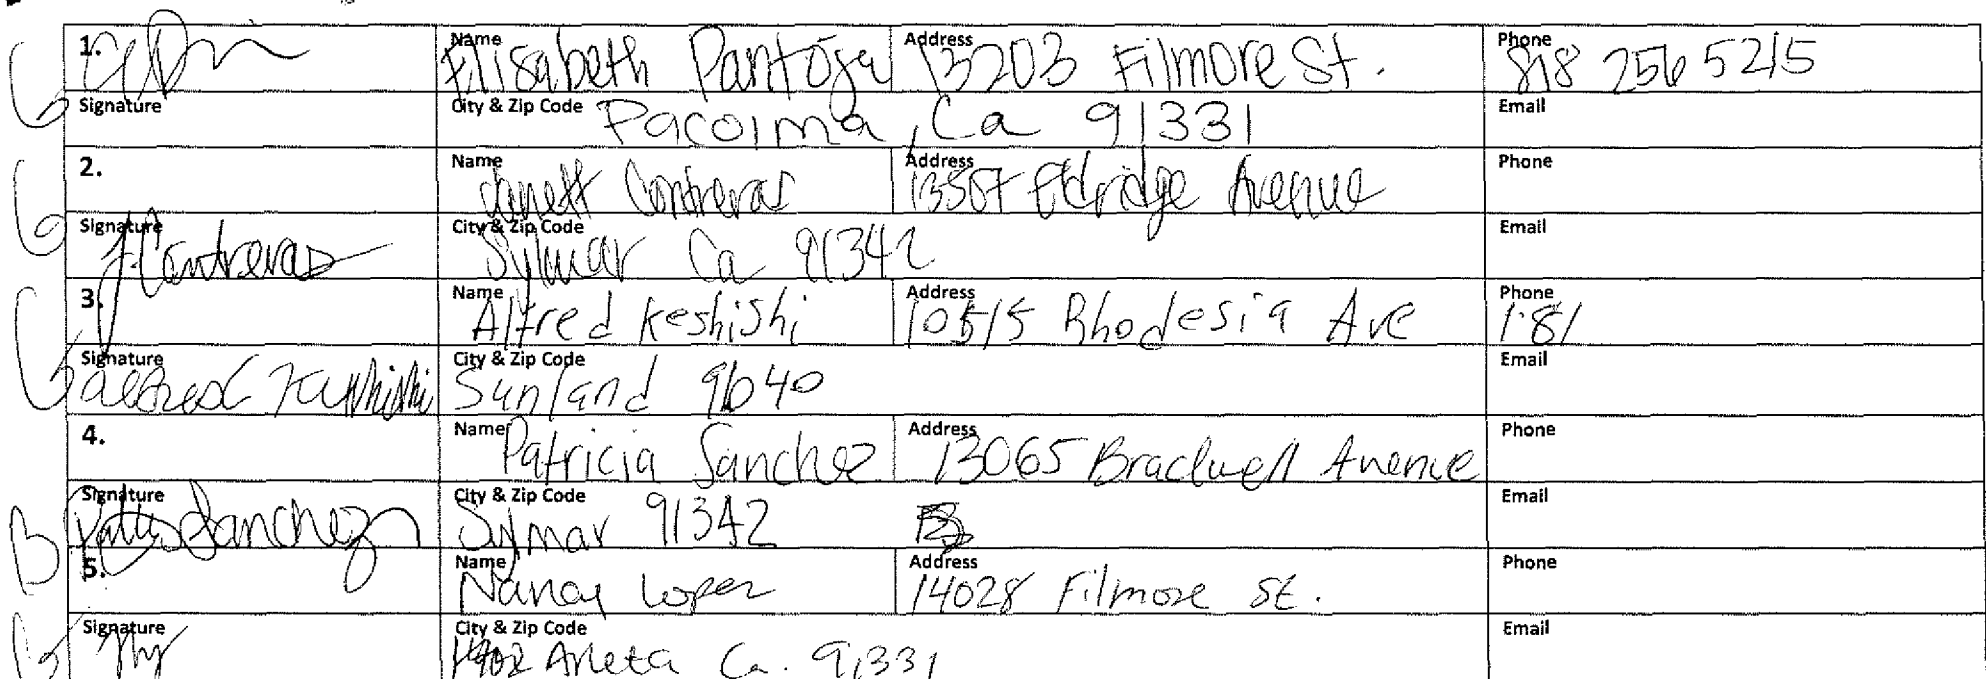 1. Name Elisabeth Pantoja Address 13203 Filmore St. Phone 818 256 5215
Signature City & Zip Code Pacoima, Ca 91331 Email
2. Name Janett Contreras Address 13507 Eldridge Avenue Phone
Signature J Contreras City & Zip Code Sylmar Ca 91342 Email
3. Name Alfred Keshishi Address 10515 Rhodesia Ave Phone 181
Signature City & Zip Code Sunland 91040 Email
4. Name Patricia Sanchez Address 13065 Bradwell Avenue Phone
Signature Sanchez City & Zip Code Sylmar 91342 Email
5. Name Nancy Lopez Address 14028 Filmore St. Phone
Signature City & Zip Code Arleta Ca. 91331 Email